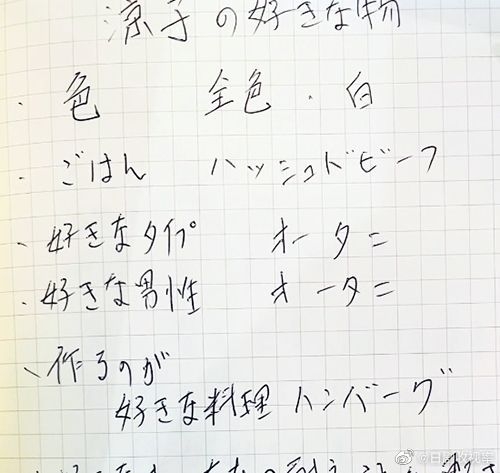 涼子の好きな物
・色　全色・白
・ごはん　ハッシュドビーフ
、好きなタイプ　オータニ
・好きな男性　オータニ
、作るのが
好きな料理 ハンバーグ